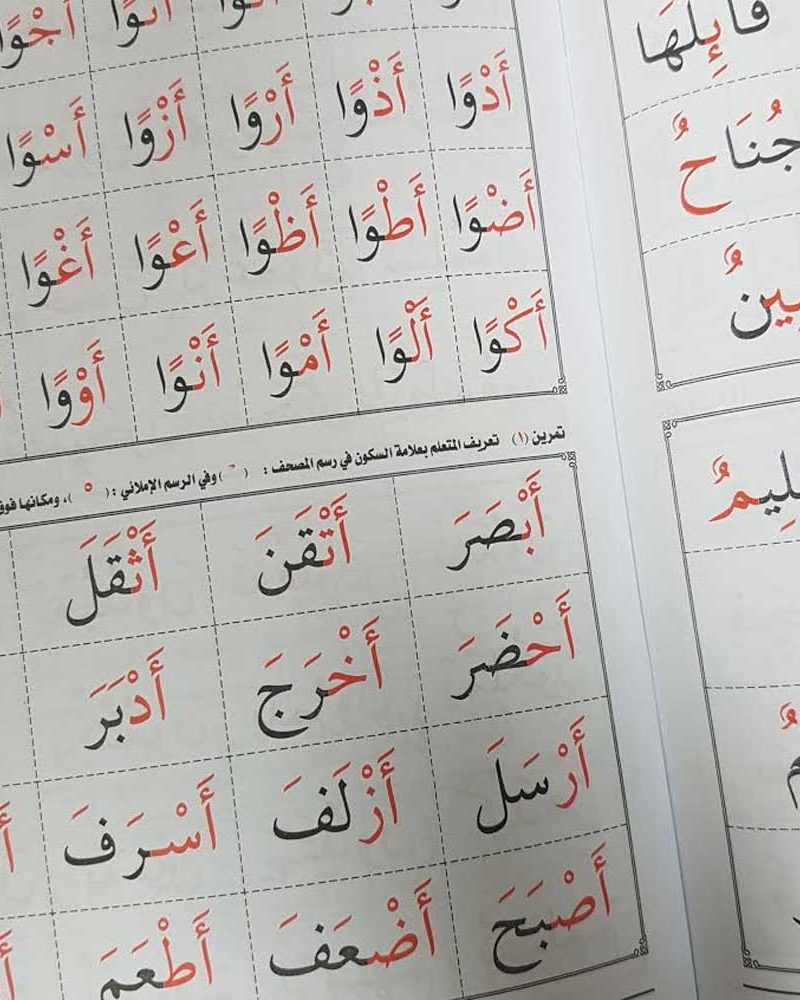 أَدْوًا أَذْوًا أَرْوًا أَزْوًا أَسْوًا
أَضْوًا أَطْوًا أَظْوًا أَعْوًا أَغْوًا
أَكْوًا أَلْوًا أَمْوًا أَنْوًا أَوْوًا
تمرين (١) تعريف المتعلم بعلامة السكون في رسم المصحف : ( ۡ ) وفي الرسم الإملائي : ( ْ )، ومكانها فوق
أَبْصَرَ أَتْقَنَ أَثْقَلَ
أَحْضَرَ أَخْرَجَ أَدْبَرَ
أَرْسَلَ أَزْلَفَ أَسْرَفَ
أَصْبَحَ أَضْعَفَ أَطْعَمَ
قَائِلُهَا
جُنَاحٌ